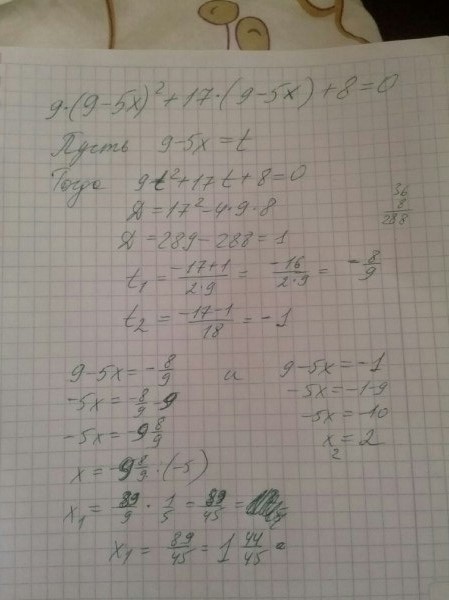 9·(9-5x)²+17·(9-5x)+8=0
Пусть 9-5x=t
Тогда 9t²+17t+8=0
36
8
288
Д=17²-4·9·8
Д=289-288=1
t₁ = -17+1/2·9 = -16/2·9 = -8/9
t₂ = -17-1/18 = -1
9-5x=-8/9 и 9-5x=-1
-5x=-8/9-9 -5x=-1-9
-5x=-9 8/9 -5x=-10
x = -9 8/9 ·(-5) x₂=2
x₁ = 89/9 · 1/5 = 89/45 =
x₁ = 89/45 = 1 44/45